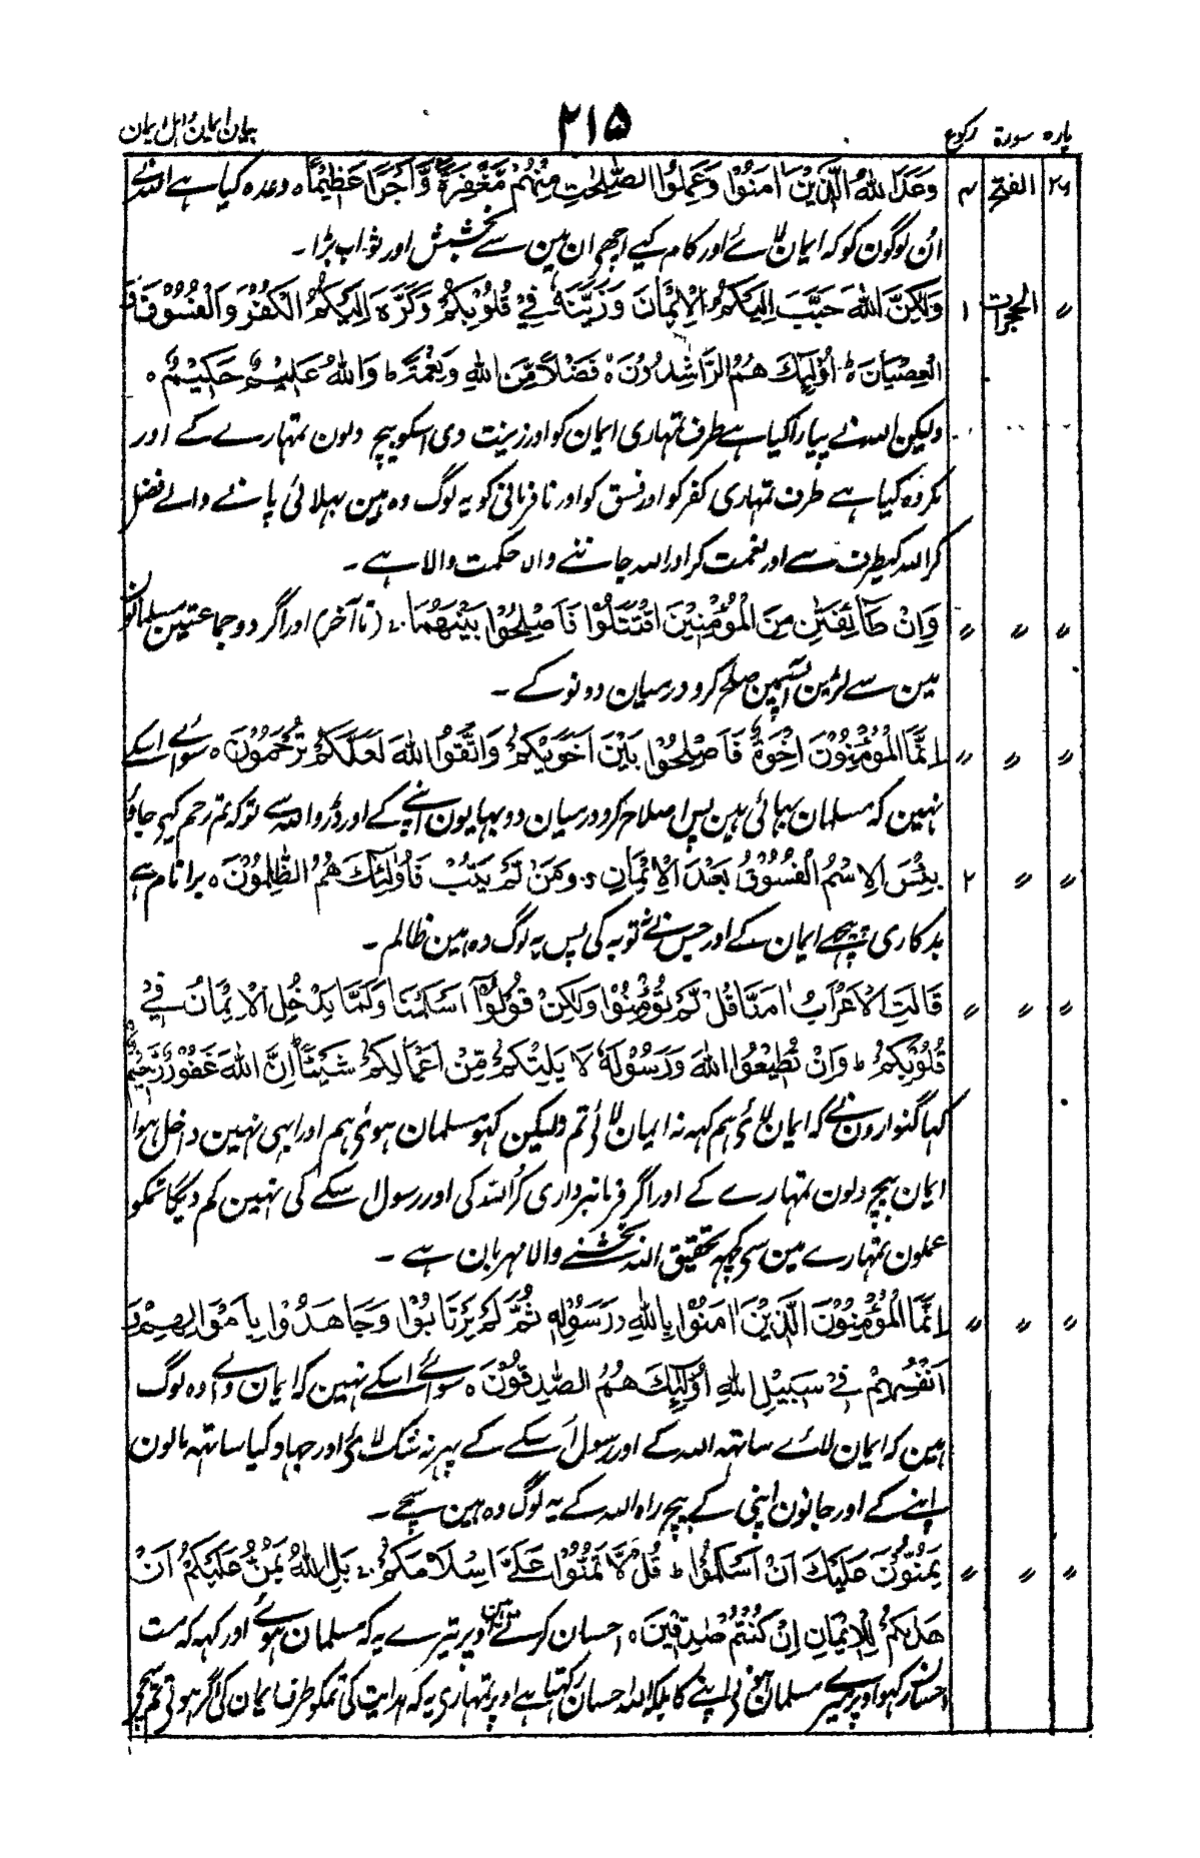 پارہ سورۃ رکوع ۲۱۵ بیان ایمان و اہل ایمان
۲۶ الفتح ۴ وَعَدَ اللّٰهُ الَّذِیْنَ اٰمَنُوْا وَعَمِلُوا الصّٰلِحٰتِ مِنْهُمْ مَّغْفِرَةً وَّاَجْرًا عَظِیْمًا ہ وعدہ کیا ہے اللہ نے
اُن لوگون کو کہ ایمان لائے اور کام کیے اچھے ان مین سے بخشش اور ثواب بڑا۔
〃 الحجرات ۱ وَلٰكِنَّ اللّٰهَ حَبَّبَ اِلَیْكُمُ الْاِیْمَانَ وَزَیَّنَهٗ فِیْ قُلُوْبِكُمْ وَكَرَّهَ اِلَیْكُمُ الْكُفْرَ وَالْفُسُوْقَ وَ
الْعِصْیَانَ ط اُولٰٓئِكَ هُمُ الرَّاشِدُوْنَ ہ فَضْلًا مِّنَ اللّٰهِ وَنِعْمَةً ط وَاللّٰهُ عَلِیْمٌ حَكِیْمٌ ہ
ولیکن اللہ نے پیارا کیا ہے طرف تمہاری ایمان کو اور زینت دی اسکو بیچ دلون تمہارے کے اور
مکروہ کیا ہے طرف تمہاری کفر کو اور فسق کو اور نافرمانی کو یہ لوگ وہ ہین بہلائی پانے والے فضل
کر اللہ کیطرف سے اور نعمت کر اور اللہ جاننے والا حکمت والا ہے۔
〃 〃 〃 وَاِنْ طَآئِفَتٰنِ مِنَ الْمُؤْمِنِیْنَ اقْتَتَلُوْا فَاَصْلِحُوْا بَیْنَهُمَا (تا آخر) اور اگر دو جماعتین مسلمانون
مین سے لڑین آپسمین صلح کرو درمیان دونو کے۔
〃 〃 〃 اِنَّمَا الْمُؤْمِنُوْنَ اِخْوَةٌ فَاَصْلِحُوْا بَیْنَ اَخَوَیْكُمْ وَاتَّقُوا اللّٰهَ لَعَلَّكُمْ تُرْحَمُوْنَ ہ سوائے اسکے
نہین کہ مسلمان بہائی ہین پس اصلاح کرو درمیان دو بہایون اپنے کے اور ڈرو اللہ سے توکہ تم رحم کیے جاؤ
〃 〃 ۲ بِئْسَ الِاسْمُ الْفُسُوْقُ بَعْدَ الْاِیْمَانِ ج وَمَنْ لَّمْ یَتُبْ فَاُولٰٓئِكَ هُمُ الظّٰلِمُوْنَ ہ برا نام ہے
بدکاری پیچھے ایمان کے اور جس نے نہ توبہ کی پس یہ لوگ وہ ہین ظالم۔
〃 〃 〃 قَالَتِ الْاَعْرَابُ اٰمَنَّا قُلْ لَّمْ تُؤْمِنُوْا وَلٰكِنْ قُوْلُوْٓا اَسْلَمْنَا وَلَمَّا یَدْخُلِ الْاِیْمَانُ فِیْ
قُلُوْبِكُمْ ط وَاِنْ تُطِیْعُوا اللّٰهَ وَرَسُوْلَهٗ لَا یَلِتْكُمْ مِّنْ اَعْمَالِكُمْ شَیْئًا ط اِنَّ اللّٰهَ غَفُوْرٌ رَّحِیْمٌ
کہا گنوارون نے کہ ایمان لائے ہم کہہ نہ ایمان لائے تم ولیکن کہو مسلمان ہوئی ہم اور ابہی نہین داخل ہوا
ایمان بیچ دلون تمہارے کے اور اگر فرمانبرداری کرو اللہ کی اور رسول اسکے کی نہین کم دیگا تمکو
عملون تمہارے مین سی کچہہ تحقیق اللہ بخشنے والا مہربان ہے۔
〃 〃 〃 اِنَّمَا الْمُؤْمِنُوْنَ الَّذِیْنَ اٰمَنُوْا بِاللّٰهِ وَرَسُوْلِهٖ ثُمَّ لَمْ یَرْتَابُوْا وَجَاهَدُوْا بِاَمْوَالِهِمْ وَ
اَنْفُسِهِمْ فِیْ سَبِیْلِ اللّٰهِ اُولٰٓئِكَ هُمُ الصّٰدِقُوْنَ ہ سوائے اسکے نہین کہ ایمان والے وہ لوگ
ہین کہ ایمان لائے ساتہہ اللہ کے اور رسول اسکے کے پہر نہ شک لائے اور جہاد کیا ساتہہ مالون
اپنے کے اور جانون اپنی کے بیچ راہ اللہ کے یہ لوگ وہ ہین سچے۔
〃 〃 〃 یَمُنُّوْنَ عَلَیْكَ اَنْ اَسْلَمُوْا ط قُلْ لَّا تَمُنُّوْا عَلَیَّ اِسْلَامَكُمْ بَلِ اللّٰهُ یَمُنُّ عَلَیْكُمْ اَنْ
هَدٰىكُمْ لِلْاِیْمَانِ اِنْ كُنْتُمْ صٰدِقِیْنَ ہ احسان کرتے ہین اوپر تیرے یہ کہ مسلمان ہوئے اور کہہ کہ مت
احسان رکہو اوپر میرے مسلمان ہونے اپنے کا بلکہ اللہ احسان رکہتا ہے اوپر تمہاری یہ کہ ہدایت کی تمکو طرف ایمان کی اگر ہو تم سچے